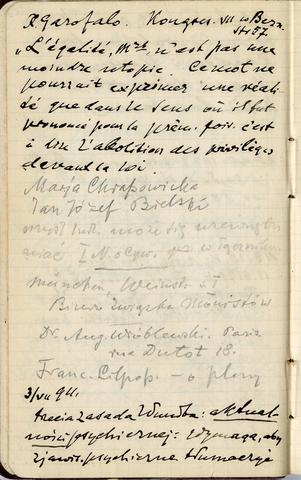 R Garofalo. Kongres. VII w Bern.
str 57
"L'égalité, Mrs, n'est pas une
moindre utopie. Ce mot ne
pourrait exprimer une réali-
té que dans le sens où il fut
prononcé pour la prem. fois. c'est
à dire l'abolition des privilèges
devant la loi.
Marja Chrapowicka
Jan Józef Bielski
może się
München,
Biuro Związku Monistów
Dr. Aug. Wróblewski. Paris
rue Dutot 18.
Franc. Lilpop. — o plony
3/VII 911.
trzecia zasada Wundta: aktual-
ności psychicznej: Wymaga, aby
zjawis. psychiczne tłumaczyć